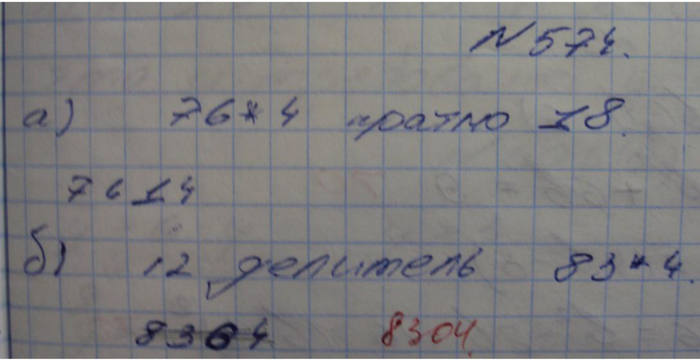 № 574.
а) 76*4 кратно 18.
7614
б) 12 делитель 83*4.
8364 8304